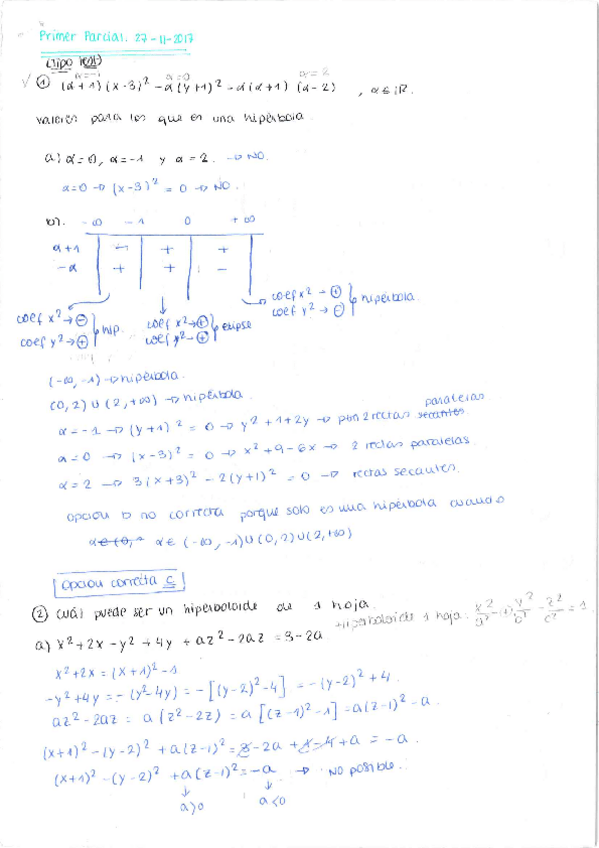 Primer Parcial. 27-11-2017
(Tipo test)
α=-1 α=0 α=2
① (α+1)(x-3)² - α(y+1)² - α(α+1)(α-2) , α∈ℝ.
valores para los que es una hipérbola.
a) α=0, α=-1 y α=2. → NO.
α=0 → (x-3)² = 0 → NO.
b). -∞ -1 0 +∞
α+1 - + +
-α + + -
coef x² → ⊕ coef y² → ⊖ } hipérbola.
coef x² → ⊖ coef y² → ⊕ } hip. coef x² → ⊕ coef y² → ⊕ } elipse
(-∞, -1) → hipérbola.
(0,2) ∪ (2,+∞) → hipérbola
α=-1 → (y+1)² = 0 → y²+1+2y → 2 rectas secantes paralelas
α=0 → (x-3)² = 0 → x²+9-6x → 2 rectas paralelas.
α=2 → 3(x+3)² - 2(y+1)² = 0 → rectas secantes.
opción b no correcta porque solo es una hipérbola cuando
α∈(0, α∈ (-∞, -1)∪(0,2)∪(2,+∞)
opción correcta c
② Cuál puede ser un hiperboloide de 1 hoja.
Hiperboloide 1 hoja: x²/a² + y²/b² - z²/c² = 1.
a) x²+2x-y²+4y+az²-2az = 3-2a
x²+2x = (x+1)²-1
-y²+4y = -(y²-4y) = -[(y-2)²-4] = -(y-2)²+4.
az²-2az = a(z²-2z) = a[(z-1)²-1] = a(z-1)²-a.
(x+1)²-(y-2)²+a(z-1)² = 3-2a+1-4+a = -a.
(x+1)²-(y-2)²+a(z-1)² = -a → No posible.
a>0 a<0